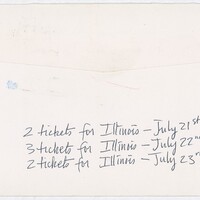 2 tickets for Illinois – July 21st
3 tickets for Illinois – July 22nd
2 tickets for Illinois – July 23rd